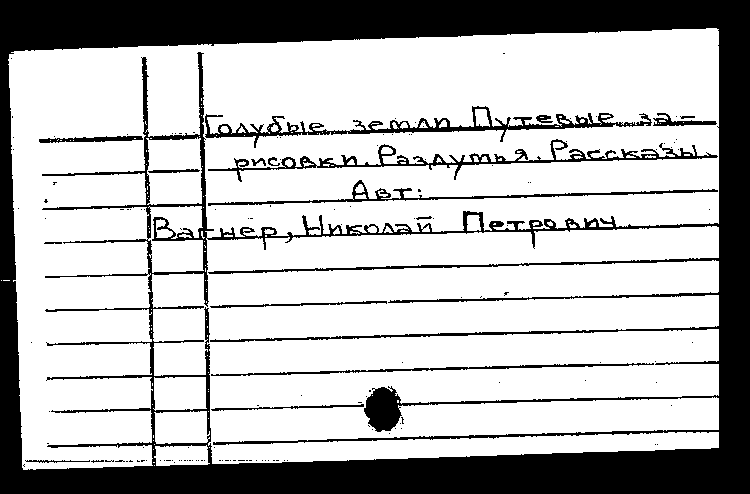 Голубые земли Путевые за-
рисовки. Раздумья. Рассказы.
Авт:
Вагнер, Николай Петрович.